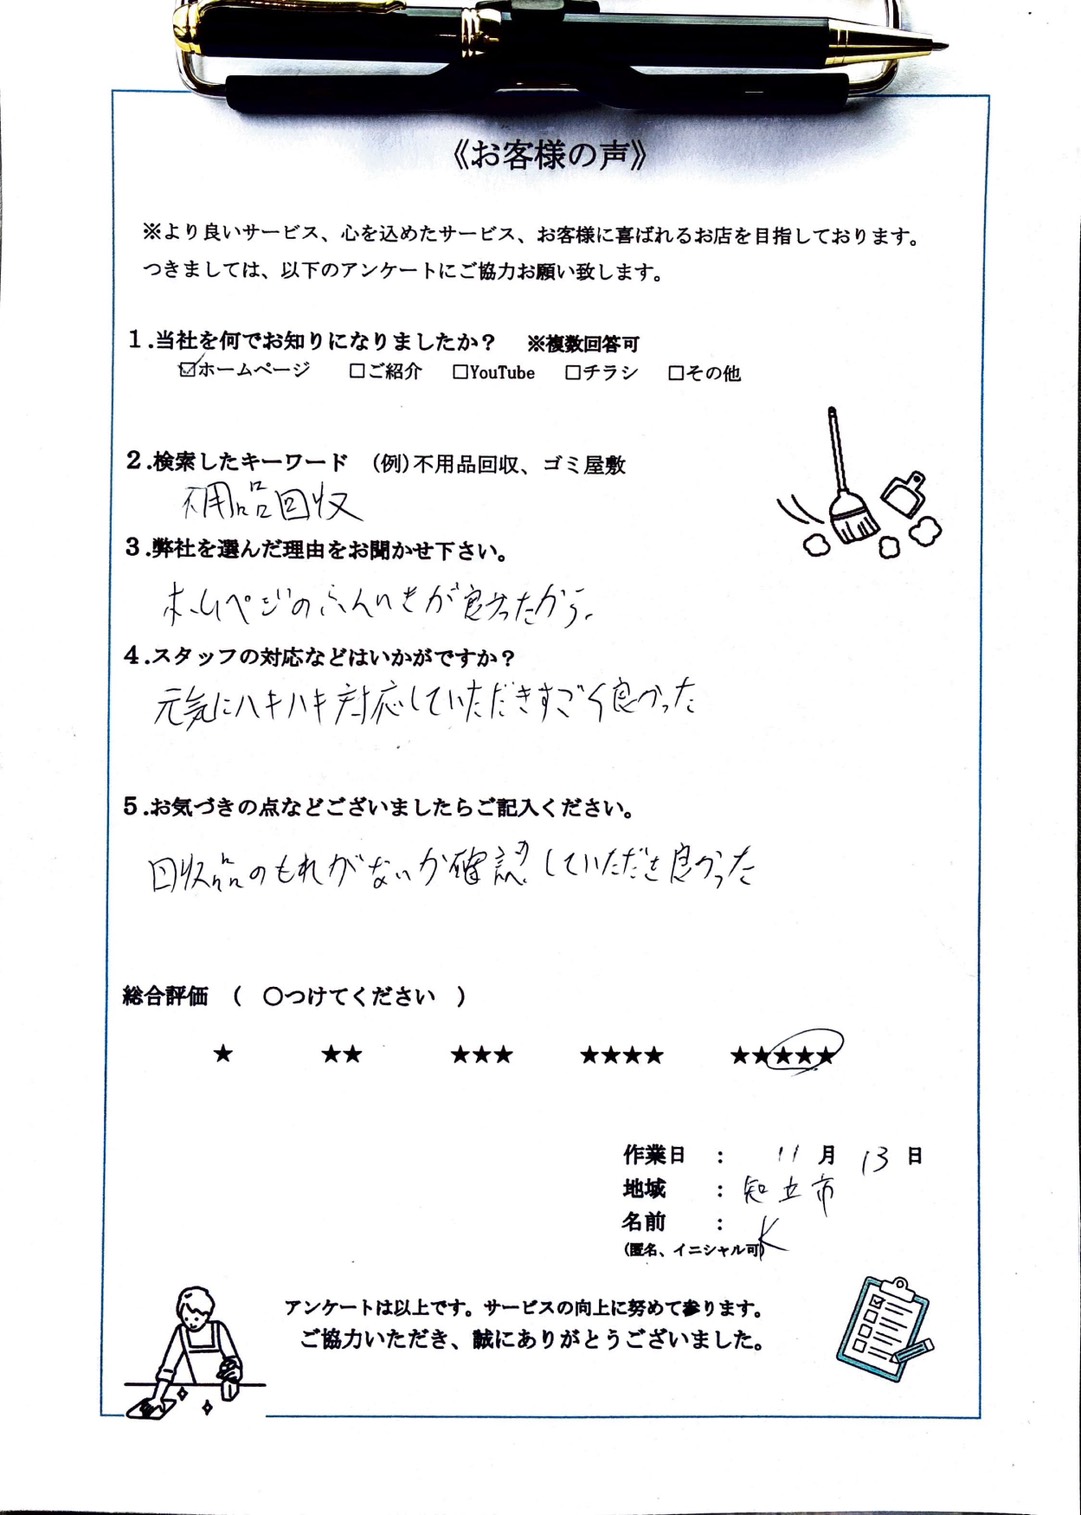 《お客様の声》
※より良いサービス、心を込めたサービス、お客様に喜ばれるお店を目指しております。
つきましては、以下のアンケートにご協力お願い致します。
1.当社を何でお知りになりましたか？ ※複数回答可
☑ホームページ □ご紹介 □YouTube □チラシ □その他
2.検索したキーワード (例)不用品回収、ゴミ屋敷
不用品回収
3.弊社を選んだ理由をお聞かせ下さい。
ホームページのふんいきが良かったから。
4.スタッフの対応などはいかがですか？
元気にハキハキ対応していただきすごく良かった
5.お気づきの点などございましたらご記入ください。
回収品のもれがないか確認していただき良かった
総合評価 （ 〇つけてください ）
★ ★★ ★★★ ★★★★ ★★★★★
作業日 ： 11 月 13 日
地域 ： 知立市
名前 ： K
(匿名、イニシャル可)
アンケートは以上です。サービスの向上に努めて参ります。
ご協力いただき、誠にありがとうございました。